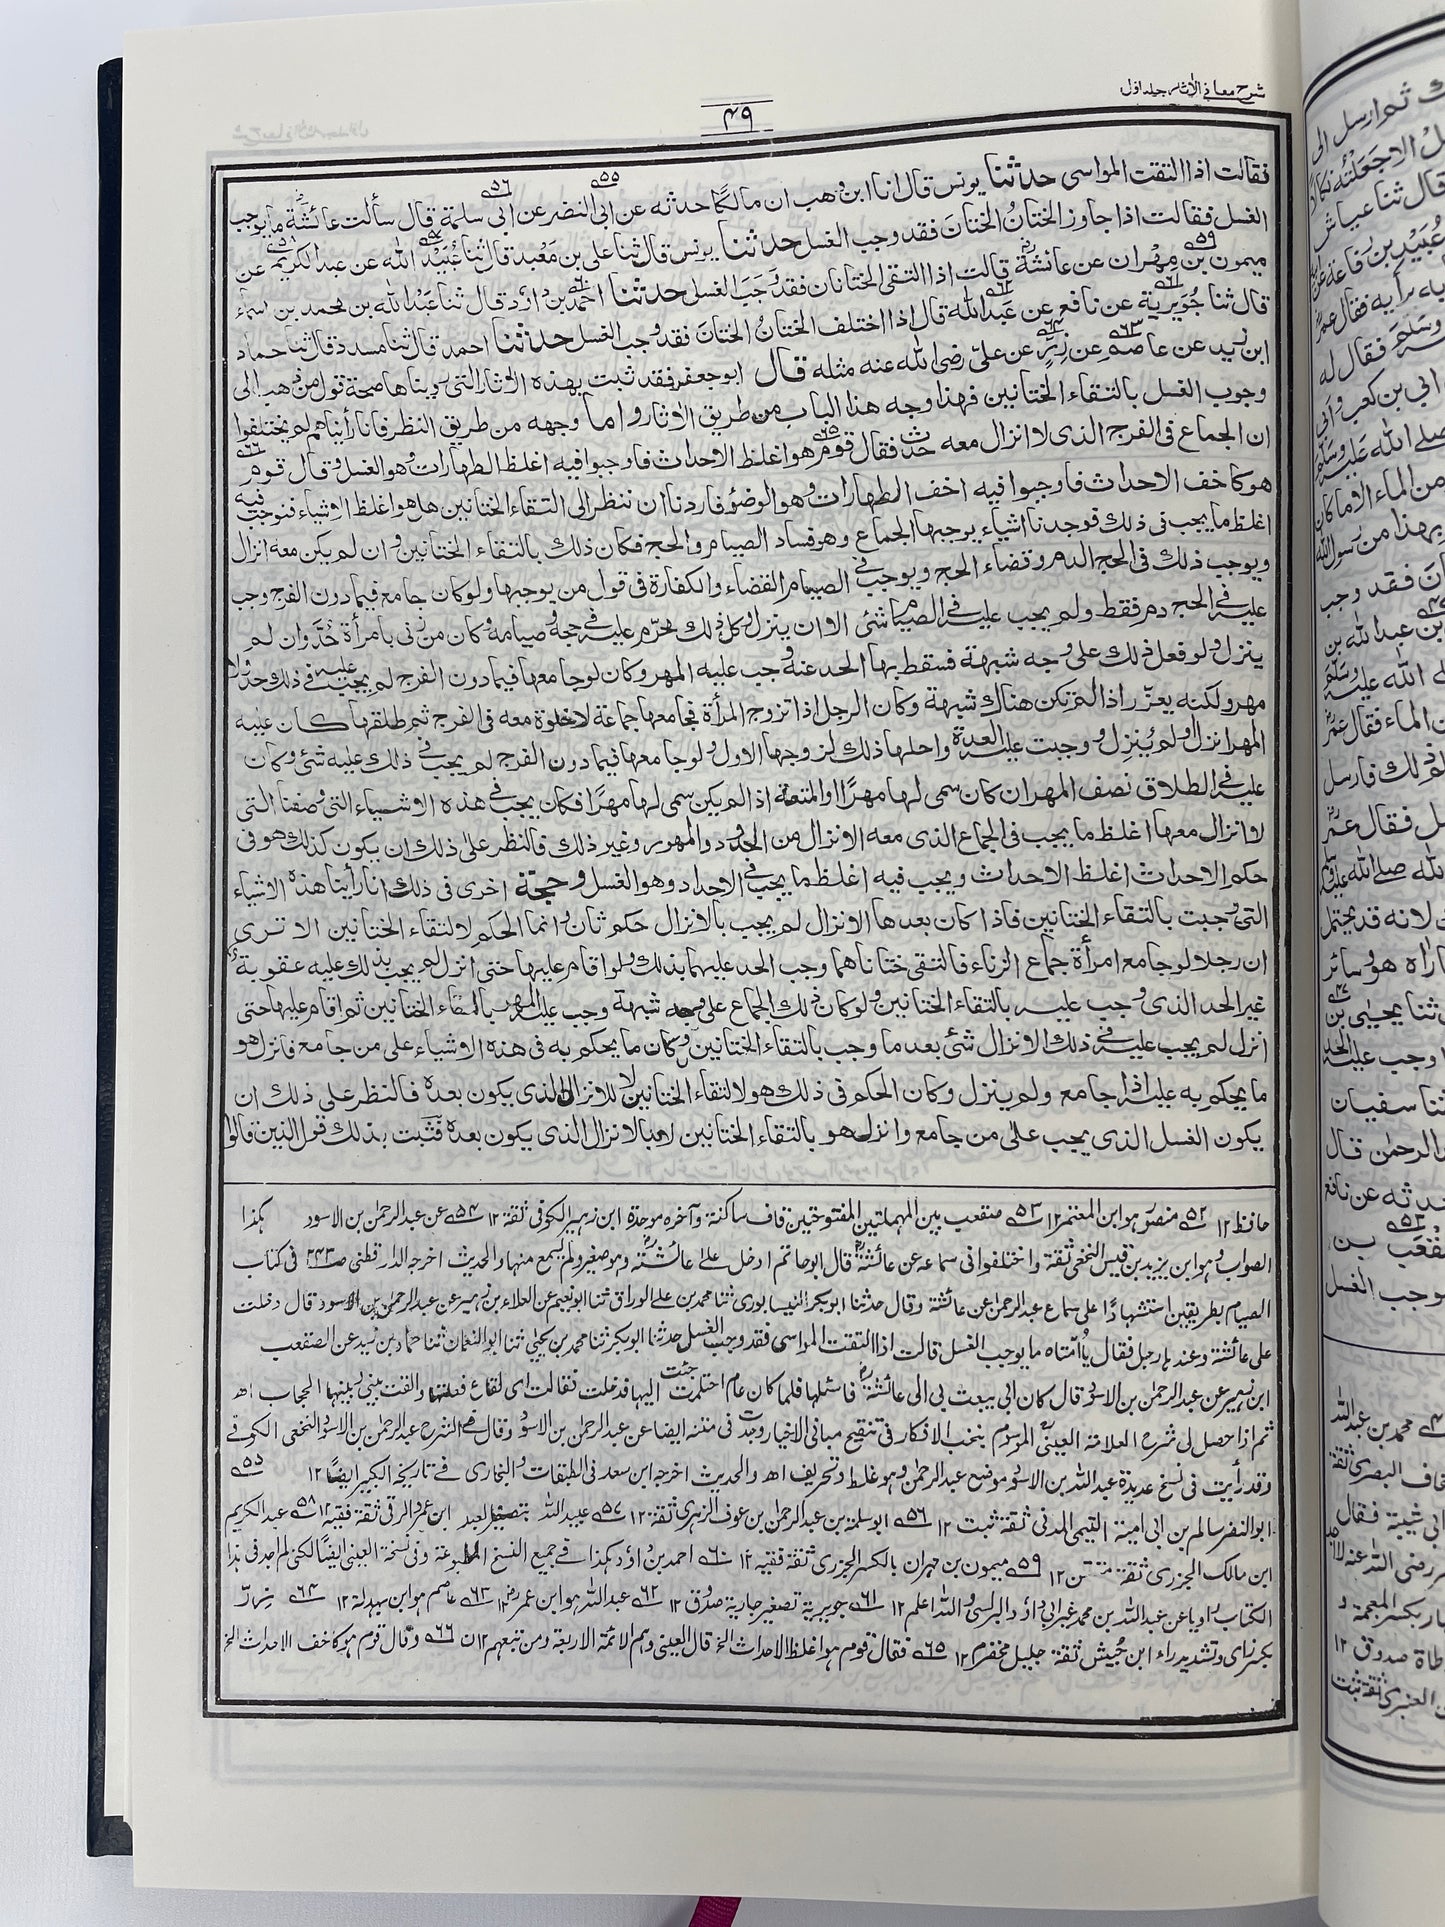 شرح معاني الآثار جلد اول
۴۹
فقالت اذا التقت المواسى حدثنا يونس قال انا ابن وهب ان مالكًا حدثه عن ابى النضر عن ابى سلمة قال سألت عائشة ما يوجب
الغسل فقالت اذا جاوز الختانُ الختانَ فقد وجب الغسل حدثنا يونس قال ثنا على بن مَعْبد قال ثنا عُبَيْد الله عن عبد الكريم عن
ميمون بن مِهْران عن عائشة قالت اذا التقى الختانان فقد وَجَبَ الغسل حدثنا احمد بن داؤد قال ثنا عَبْد الله بن محمد بن اسماء
قال ثنا جُوَيرية عن نافع عن عَبد الله قال اذا اختلف الختانُ الختانَ فقد وجب الغسل حدثنا احمد قال ثنا مسدد قال ثنا حماد
ابن زيد عن عاصم عن زِرّ عن علىّ رضى الله عنه مثله قال ابو جعفر فقد ثبت بهذه الاثار التى رويناها صحة قول من ذهب الى
وجوب الغسل بالتقاء الختانين فهذا وجه هذا الباب من طريق الاثار واما وجهه من طريق النظر فانا رأيناهم لم يختلفوا
ان الجماع فى الفرج الذى لا انزال معه حدث فقال قوم هو اغلظ الاحداث فاوجبوا فيه اغلظ الطهارات وهو الغسل وقال قوم
هو كاخف الاحداث فاوجبوا فيه اخف الطهارات وهو الوضوء فاردنا ان ننظر الى التقاء الختانين هل هو اغلظ الاشياء فنوجب فيه
اغلظ ما يجب فى ذلك فوجدنا اشياء يوجبها الجماع وهو فساد الصيام والحج فكان ذلك بالتقاء الختانين وان لم يكن معه انزال
ويوجب ذلك فى الحج الدم وقضاء الحج ويوجب فى الصيام القضاء والكفارة فى قول من يوجبها ولو كان جامع فيما دون الفرج وجب
عليه فى الحج دم فقط ولم يجب عليه فى الصيام شئ الا ان ينزل وكل ذلك محرّم عليه فى حجه وصيامه وكان من زنى بامرأة حُدَّ وان لم
ينزل ولو فعل ذلك على وجه شبهة فسقط بها الحد عنه وجب عليه المهر وكان لو جامعها فيما دون الفرج لم يجب عليه فى ذلك حد ولا
مهر ولكنه يعزّر اذا لم تكن هناك شبهة وكان الرجل اذا تزوج المرأة فجامعها جماعة لا خلوة معه فى الفرج ثم طلقها كان عليه
المهر انزل او لم يُنزِل ووجبت عليها العدة واحلها ذلك لزوجها الاول ولو جامعها فيما دون الفرج لم يجب فى ذلك عليه شئ وكان
عليه فى الطلاق نصف المهر ان كان سمى لها مهرًا او المتعة اذا لم يكن سمى لها مهرًا فكان يجب فى هذه الاشياء التى وصفنا التى
لا انزال معها اغلظ ما يجب فى الجماع الذى معه الانزال من الحدود والمهور وغير ذلك فالنظر على ذلك ان يكون كذلك هو فى
حكم الاحداث اغلظ الاحداث ويجب فيه اغلظ ما يجب فى الاحداث وهو الغسل وحجة اخرى فى ذلك انا رأينا هذه الاشياء
التى وجبت بالتقاء الختانين فاذا كان بعدها الانزال لم يجب بالانزال حكم ثان وانما الحكم لالتقاء الختانين الا ترى
ان رجلا لو جامع امرأة جماع الزناء فالتقى ختاناهما وجب الحد عليهما بذلك ولو اقام عليها حتى انزل لم يجب بذلك عليه عقوبة
غير الحد الذى وجب عليه بالتقاء الختانين ولو كان ذلك الجماع على وجه شبهة وجب عليه المهر بالتقاء الختانين ثم اقام عليها حتى
انزل لم يجب عليه فى ذلك الانزال شئ بعد ما وجب بالتقاء الختانين وكان ما يحكم به فى هذه الاشياء على من جامع فانزل هو
ما يحكم به عليه اذا جامع ولم ينزل وكان الحكم فى ذلك هو لالتقاء الختانين لا للانزال الذى يكون بعده فالنظر على ذلك ان
يكون الغسل الذى يجب على من جامع وانزل هو بالتقاء الختانين لا بالانزال الذى يكون بعده فثبت بذلك قول الذين قالوا
حافظ ۱۲ ۵۲ منصور هو ابن المعتمر ۱۲ ۵۳ صقعب بين المهملتين المفتوحتين قاف ساكنة وآخره موحدة ابن زهير الكوفى ثقة ۱۲ ۵۴ عن عبد الرحمٰن بن الاسود هكذا
الصواب وهو ابن يزيد بن قيس النخعى ثقة واختلفوا فى سماعه عن عائشة قال ابو حاتم ادخل على عائشة وهو صغير ولم يسمع منها والحديث اخرجه الدارقطنى ص ۲۴۳ فى كتاب
الصيام بطريقين استشهادًا على سماع عبد الرحمٰن عن عائشة وقال حدثنا ابو بكر النيسابورى ثنا محمد بن على الوراق ثنا ابو نعيم عن العلاء بن زهير عن عبد الرحمٰن بن الاسود قال دخلت
على عائشة وعندها رجل فقال يا اُمّتاه ما يوجب الغسل قالت اذا التقت المواسى فقد وجب الغسل حدثنا ابو بكر ثنا محمد بن يحيىٰ ثنا ابو النعمان ثنا حماد بن زيد عن الصقعب
ابن زهير عن عبد الرحمٰن بن الاسود قال كان ابى يبعث بى الى عائشة فاسئلها فلما كان عام احتلمت جئت اليها فدخلت فقالت اى لكاع فعلتها والقت بينى وبينها الحجاب اھ
ثم اذا حصل لى شرح العلامة العينى الموسوم بنخب الافكار فى تنقيح مبانى الاخيار وجدت فى متنه ايضا عن عبد الرحمٰن بن الاسود وقال فى الشرح عبد الرحمٰن بن الاسود النخعى الكوفى
وقد رأيت فى نسخ عديدة عبد الله بن الاسود موضع عبد الرحمٰن وهو غلط وتحريف اھ والحديث اخرجه ابن سعد فى الطبقات والبخارى فى تاريخه الكبير ايضًا ۱۲ ۵۵
ابو النضر سالم بن ابى امية التيمى المدنى ثقة ثبت ۱۲ ۵۶ ابو سلمة بن عبد الرحمٰن بن عوف الزهرى ثقة ۱۲ ۵۷ عبيد الله بتصغير العبد ابن عمرو الرقى ثقة فقيه ۱۲ ۵۸ عبد الكريم
ابن مالك الجزرى ثقة متقن ۱۲ ۵۹ ميمون بن مهران بالكسر الجزرى ثقة فقيه ۱۲ ۶۰ احمد بن داؤد هكذا فى جميع النسخ المطبوعة وفى نسخة العينى ايضًا لكنى لم اجد فى هذا
الكتاب راويا عن عبد الله بن محمد غير ابى داؤد البرلسى والله اعلم ۱۲ ۶۱ جويرية تصغير جارية صدوق ۱۲ ۶۲ عبد الله هو ابن عمر ۱۲ ۶۳ عاصم هو ابن بهدلة ۱۲ ۶۴ زرّ
بكسر زاى وتشديد راء ابن حُبيش ثقة جليل مخضرم ۱۲ ۶۵ فقال قوم هو اغلظ الاحداث الخ قال العينى وهم الائمة الاربعة ومن تبعهم ۱۲ ۶۶ وقال قوم هو كاخف الاحداث الخ